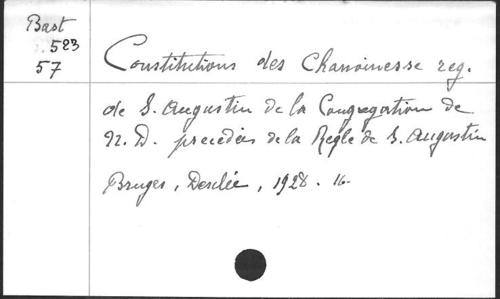 Bast
523
57
Constitutions des Chanoinesse reg.
de S. Augustin de la Congregation de
N. D. precedées de la Regle de S. Augustin
Bruges, Desclée, 1928. 16-